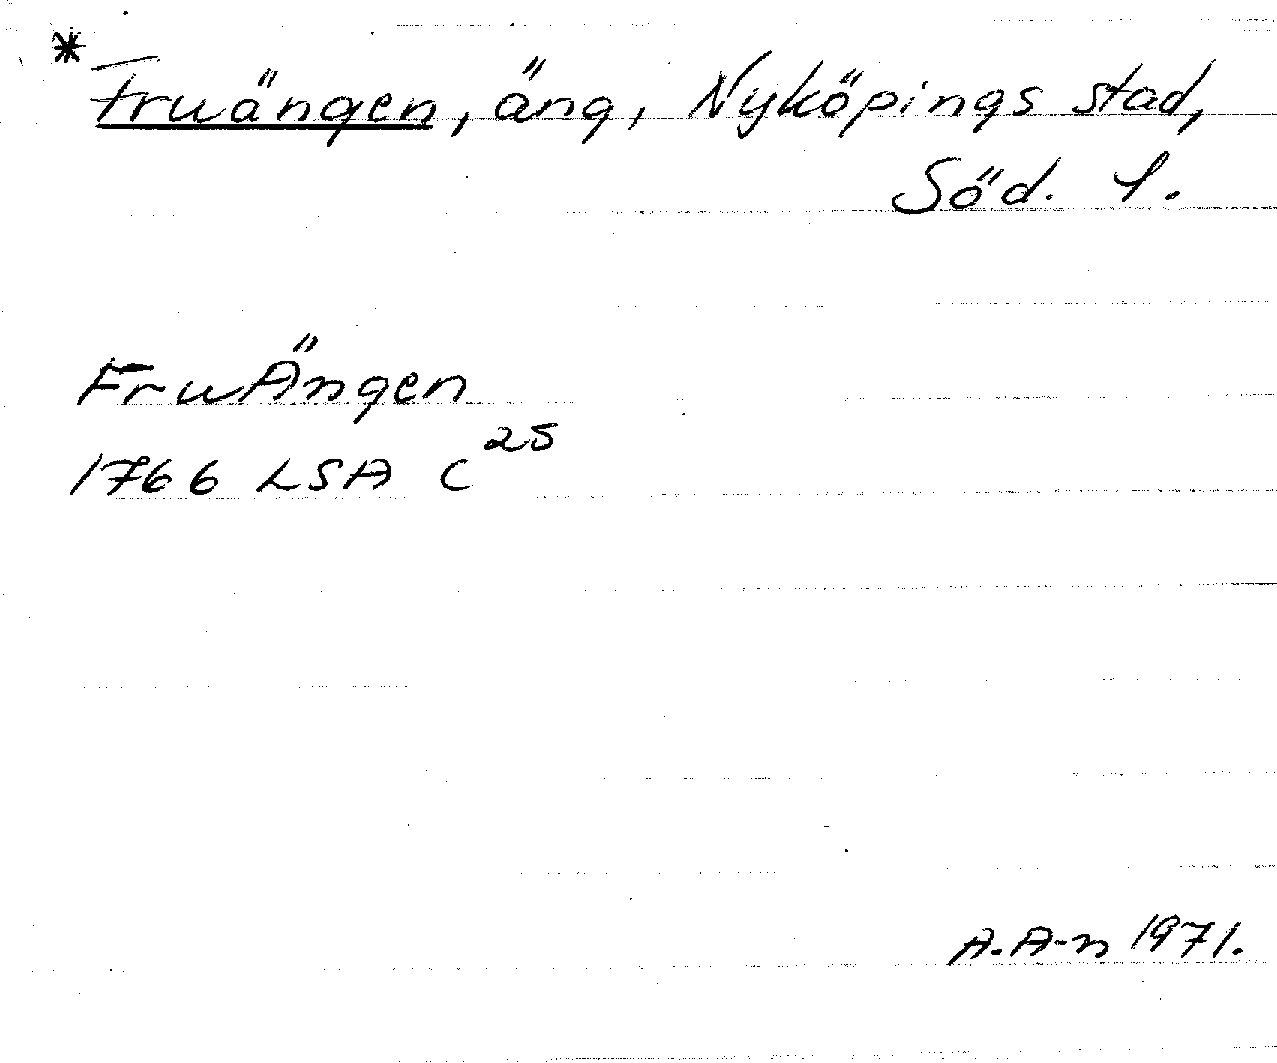 * Fruängen, äng, Nyköpings stad,
Söd. l.
FruÄngen
1766 LSA C²⁵
A.A-n 1971.